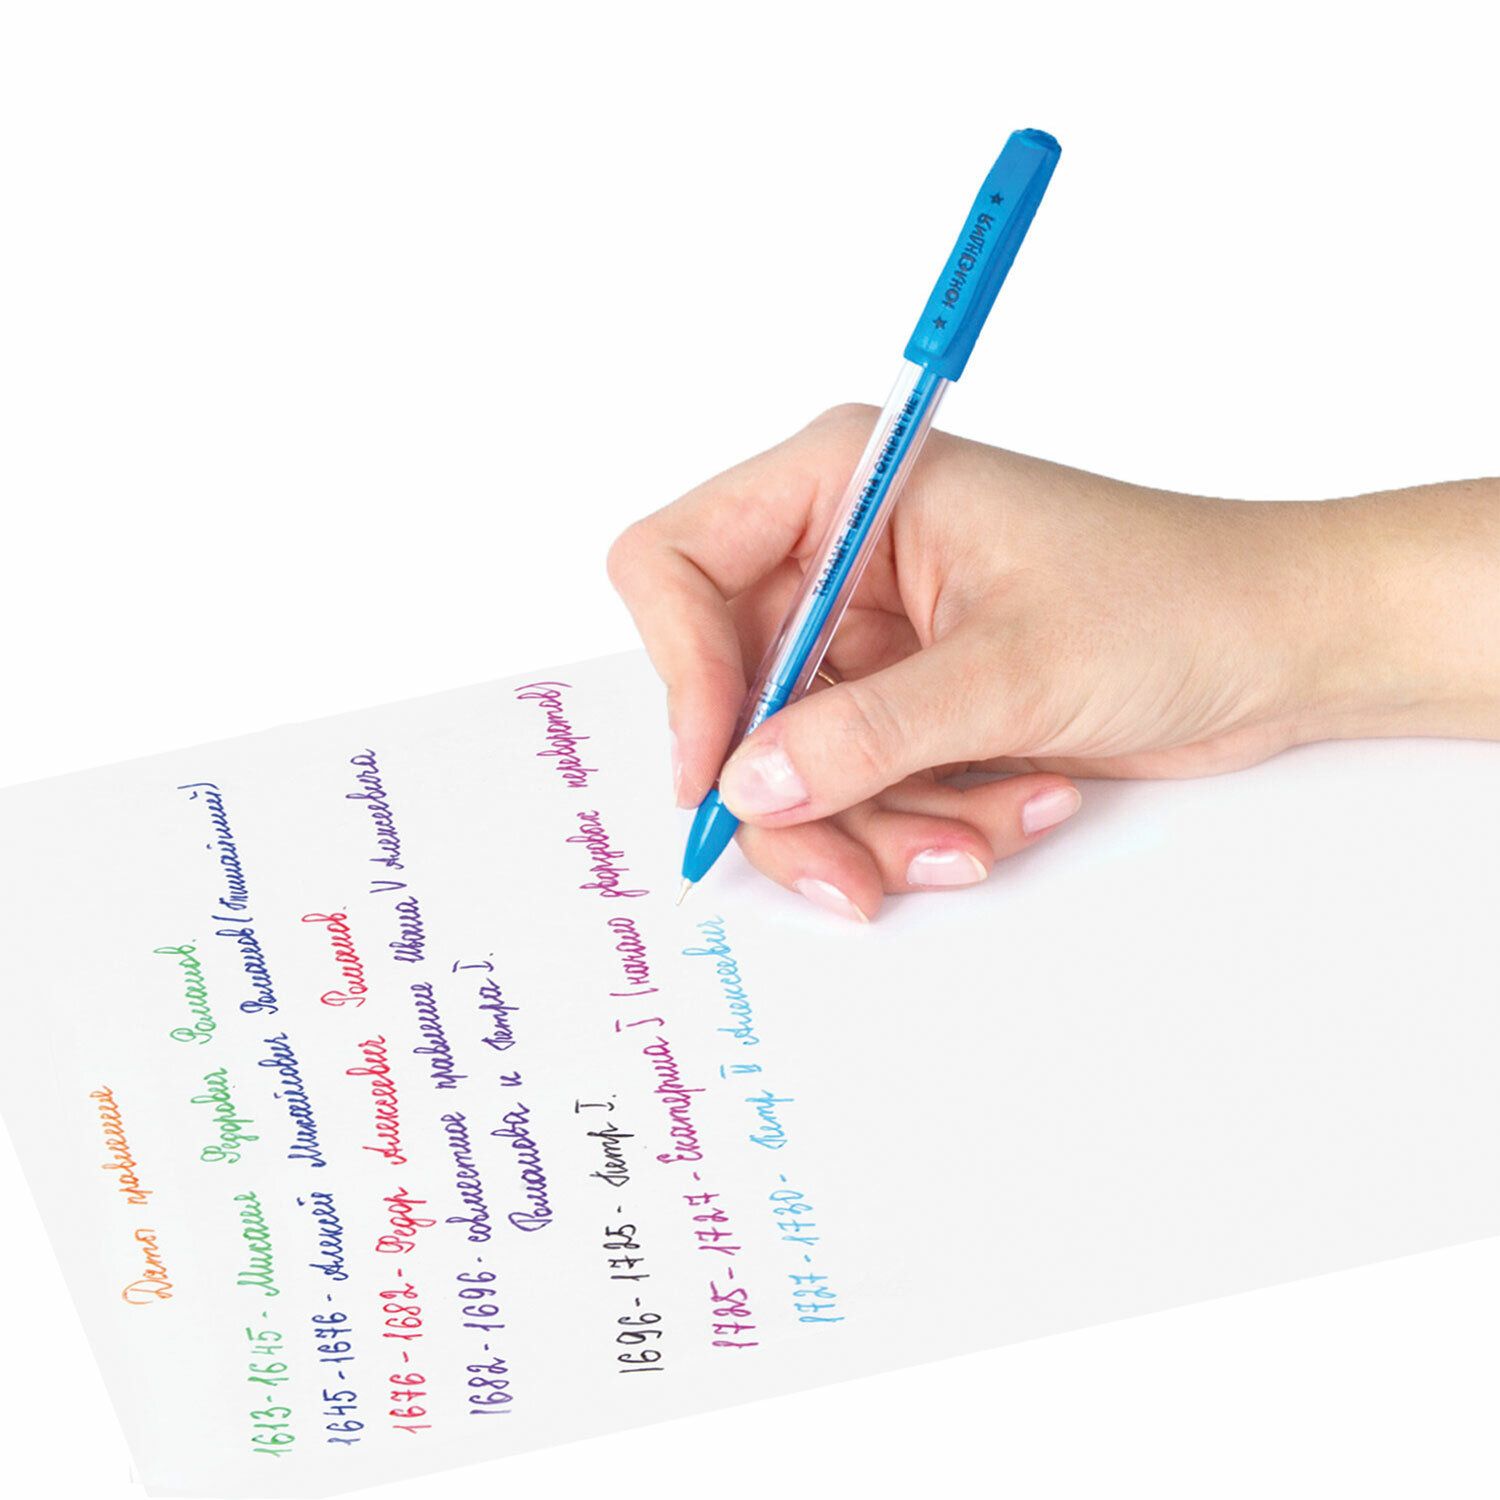 Даты правления
1613-1645 - Михаил Федорович Романов.
1645-1676 - Алексей Михайлович Романов (тишайший)
1676-1682 - Федор Алексеевич Романов.
1682-1696 - совместное правление Ивана V Алексеевича
Романова и Петра I.
1696-1725 - Петр I.
1725-1727 - Екатерина I (начало дворцовых переворотов)
1727-1730 - Петр II Алексеевич
★ ЮНЛАНДИЯ ★
ТАЛАНТ ПОБЕДА ОТКРЫТИЕ!